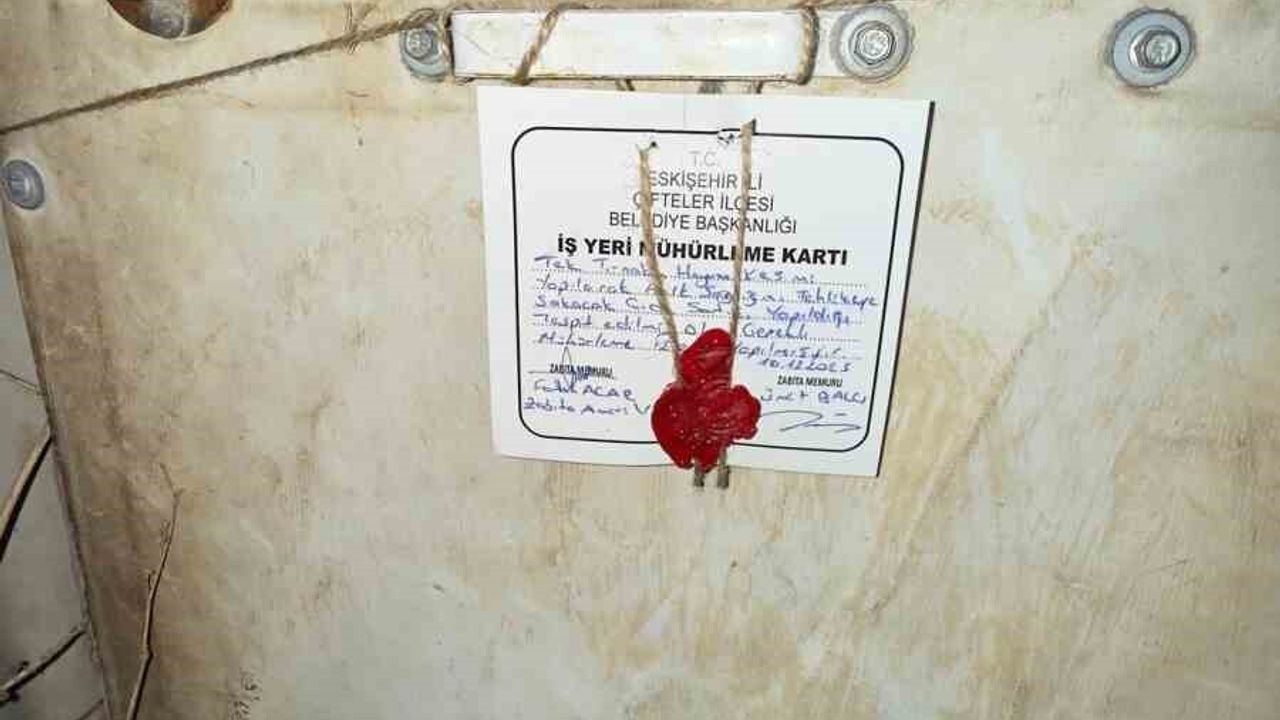 T.C.
ESKİŞEHİR İLİ
ÇİFTELER İLÇESİ
BELEDİYE BAŞKANLIĞI
İŞ YERİ MÜHÜRLEME KARTI
Tek Tırnaklı Hayvan Kesimi
Yapılarak Halk Sağlığını Tehlikeye
Sokacak Yapıldığı
Tespit edilmiş Gerekli
Mühürleme yapılmıştır.
10.12.2023
ZABITA MEMURU
ZABITA MEMURU
ACAR
Ümit BALCI
Zabıta Amiri V